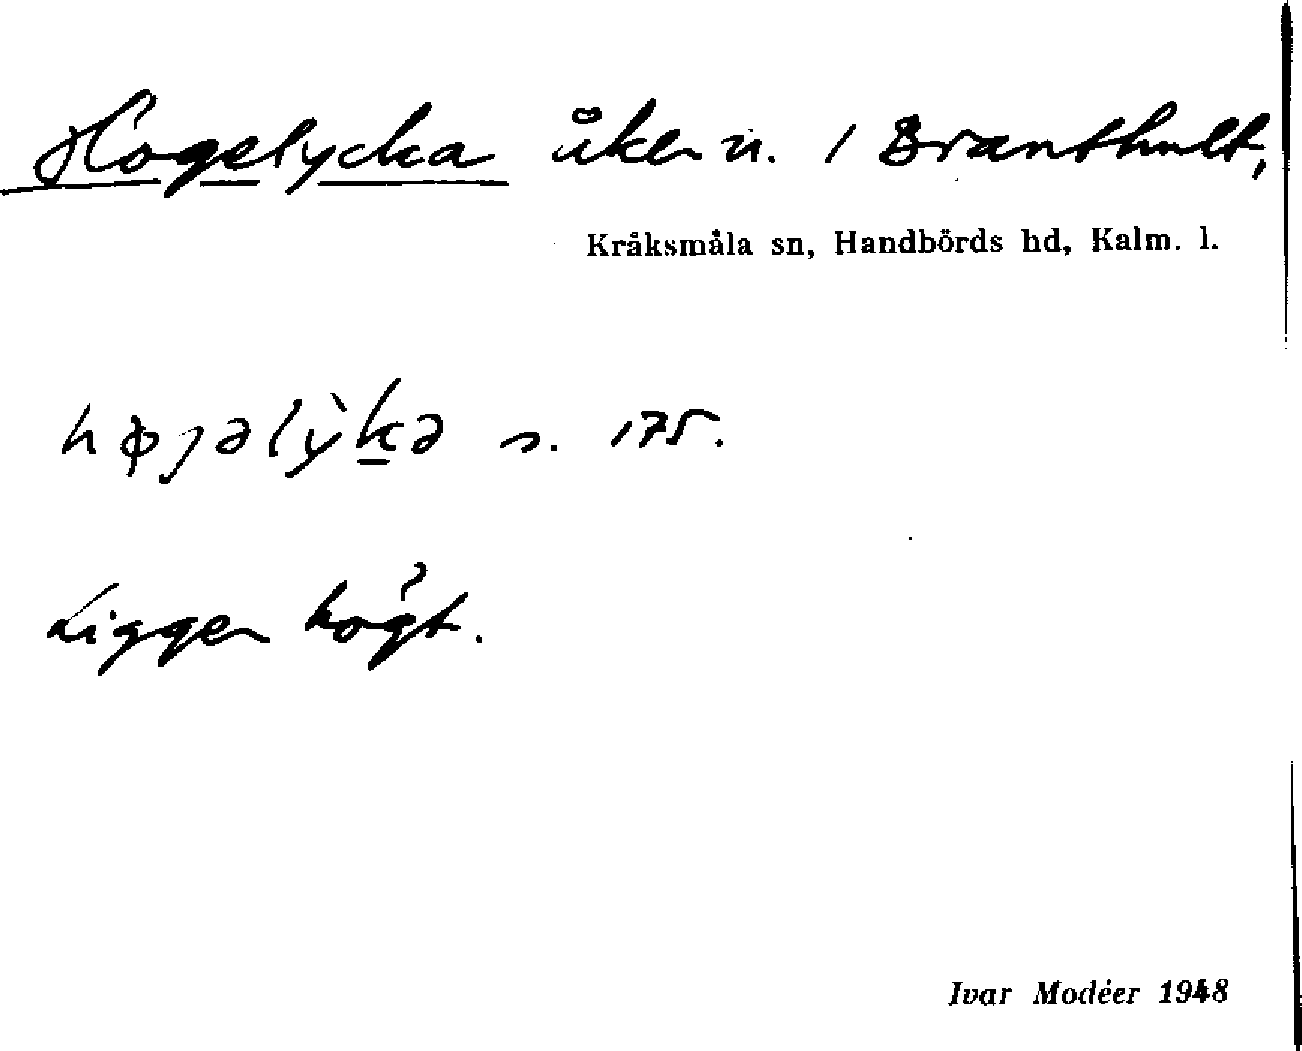 Högelycka åker n. / Branthult,
Kråksmåla sn, Handbörds hd, Kalm. l.
høgəlỳkə s. 175.
Ligger högt.
Ivar Modéer 1948